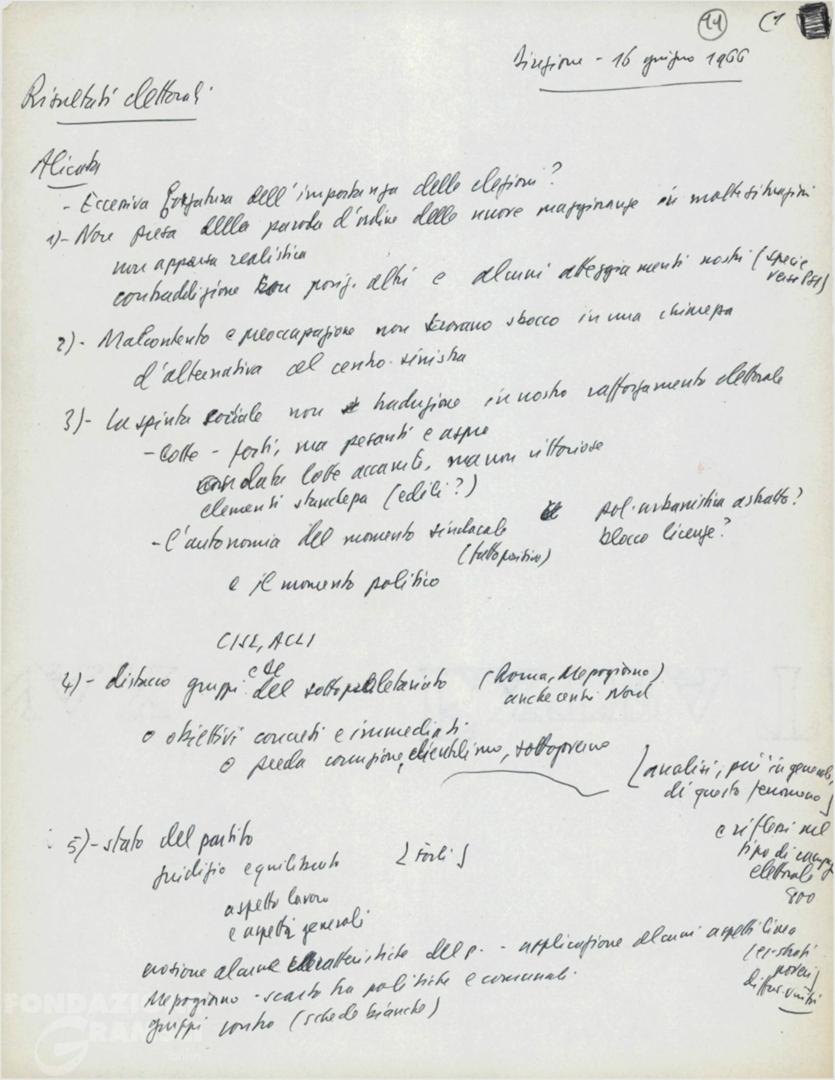 44 (1
Direzione - 16 giugno 1966
Risultati elettorali
Alicata
- Eccessiva forzatura dell'importanza delle elezioni?
1)- Non presa della parola d'ordine delle nuove maggioranze in molte situazioni
non apparsa realistica
contraddizione con posiz. altri e alcuni atteggiamenti nostri (specie
verso PSI)
2)- Malcontento e preoccupazione non trovano sbocco in una chiarezza
d'alternativa al centro-sinistra
3)- La spinta sociale non traduzione in nostro rafforzamento elettorale
- Lotte - forti, ma pesanti e aspre
lotte accanite, ma non vittoriose
elementi stanchezza (edili?)
pol. urbanistica astratta?
blocco licenze?
- L'autonomia del momento sindacale
(tutto positivo)
e il momento politico
CISL, ACLI
4)- distacco gruppi del sottoproletariato (Roma, Mezzogiorno)
anche centri Nord
o obiettivi concreti e immediati
o preda corruzione, clientelismo, sottogoverno
[analisi, più in generale,
di questo fenomeno]
e riflessi nel
tipo di campagna
elettorale
5)- stato del partito
giudizio equilibrato [Forlì]
aspetto lavoro
e aspetti generali
erosione alcune caratteristiche del p. - applicazione alcuni aspetti linea
Mezzogiorno - scarto tra politiche e comunali
gruppi contro (schede bianche)
FONDAZIONE
GRAMSCI